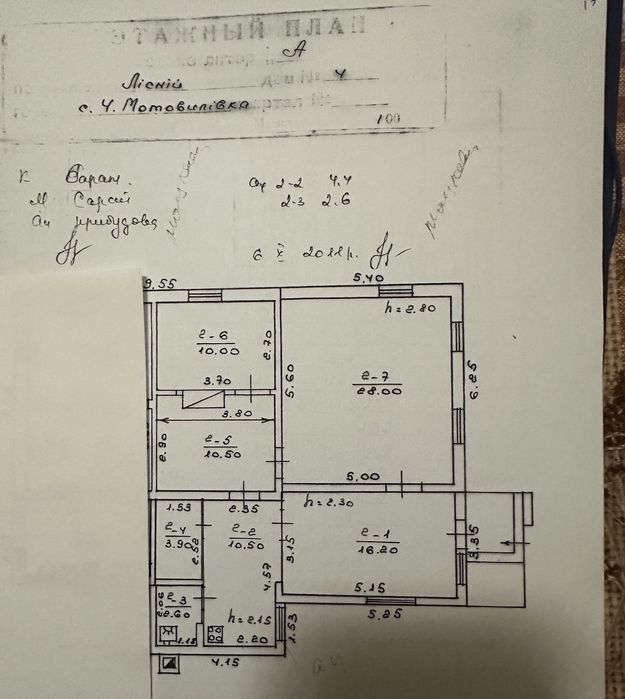 А
Лісній 4
с. Ч. Мотовилівка
100
К Баран.
М Сарай
прибудова
2-2 4.4
2-3 2.6
6 X 2011 р.
9.55
5.40
h=2.80
2-6
10.00
2.70
3.70
5.60
2-7
28.00
6.25
3.80
2-5
10.50
2.90
5.00
1.53
2.35
h=2.30
2-4
3.90
2.52
2-2
10.50
3.15
2-1
16.20
3.35
4.57
5.15
2-3
2.60
2.06
h=2.15
5.25
1.53
1.18
2.20
4.15